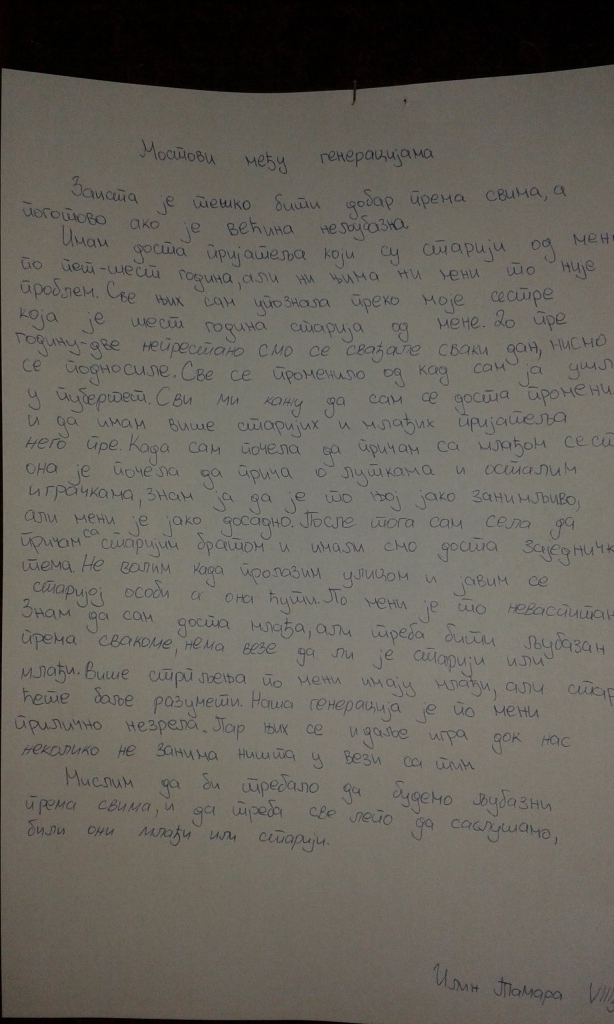 Мостови међу генерацијама
Заиста је тешко бити добар према свима, а
поготово ако је већина нељубазна.
Имам доста пријатеља који су старији од мене
по пет-шест година, али ни њима ни мени то није
проблем. Све њих сам упознала преко моје сестре
која је шест година старија од мене. До пре
годину-две непрестано смо се свађале сваки дан, нисмо
се подносиле. Све се променило од кад сам ја ушла
у пубертет. Сви ми кажу да сам се доста промени
и да имам више старијих и млађих пријатеља
него пре. Када сам почела да причам са млађом сест
она је почела да прича о луткама и осталим
играчкама, знам ја да је то њој јако занимљиво,
али мени је јако досадно. После тога сам села да
причам са старијим братом и имали смо доста заједничк
тема. Не волим када пролазим улицом и јавим се
старијој особи а она ћути. По мени је то неваспитан
Знам да сам доста млађа, али треба бити љубазан
према свакоме, нема везе да ли је старији или
млађи. Више стрпљења по мени имају млађи, али стар
ћете боље разумети. Наша генерација је по мени
прилично незрела. Пар њих се и даље игра док нас
неколико не занима ништа у вези са тим
Мислим да би требало да будемо љубазни
према свима, и да треба све лепо да саслушамо,
били они млађи или старији.
Илин Тамара VIII